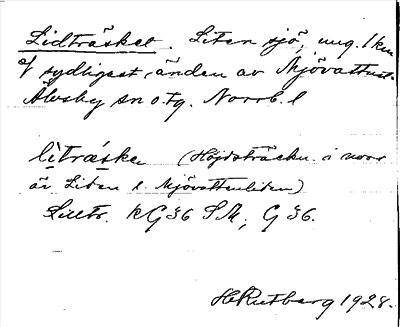 Lidträsket. Liten sjö, ung. 1 km
af sydligast änden av Mjövattnet.
Älvsby sn o. tg. Norrb. l
litráske (Höjdsträckn. i norr
är Liten l. Mjövattenliden)
Lilltr. RG36 SM; G36.
HRutberg 1928.